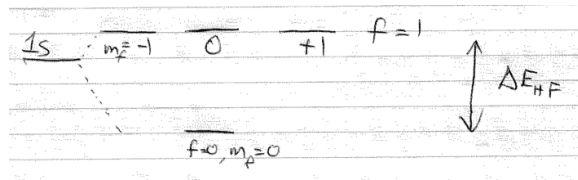 1S
m_f=-1 0 +1 f=1
ΔE_HF
f=0, m_f=0